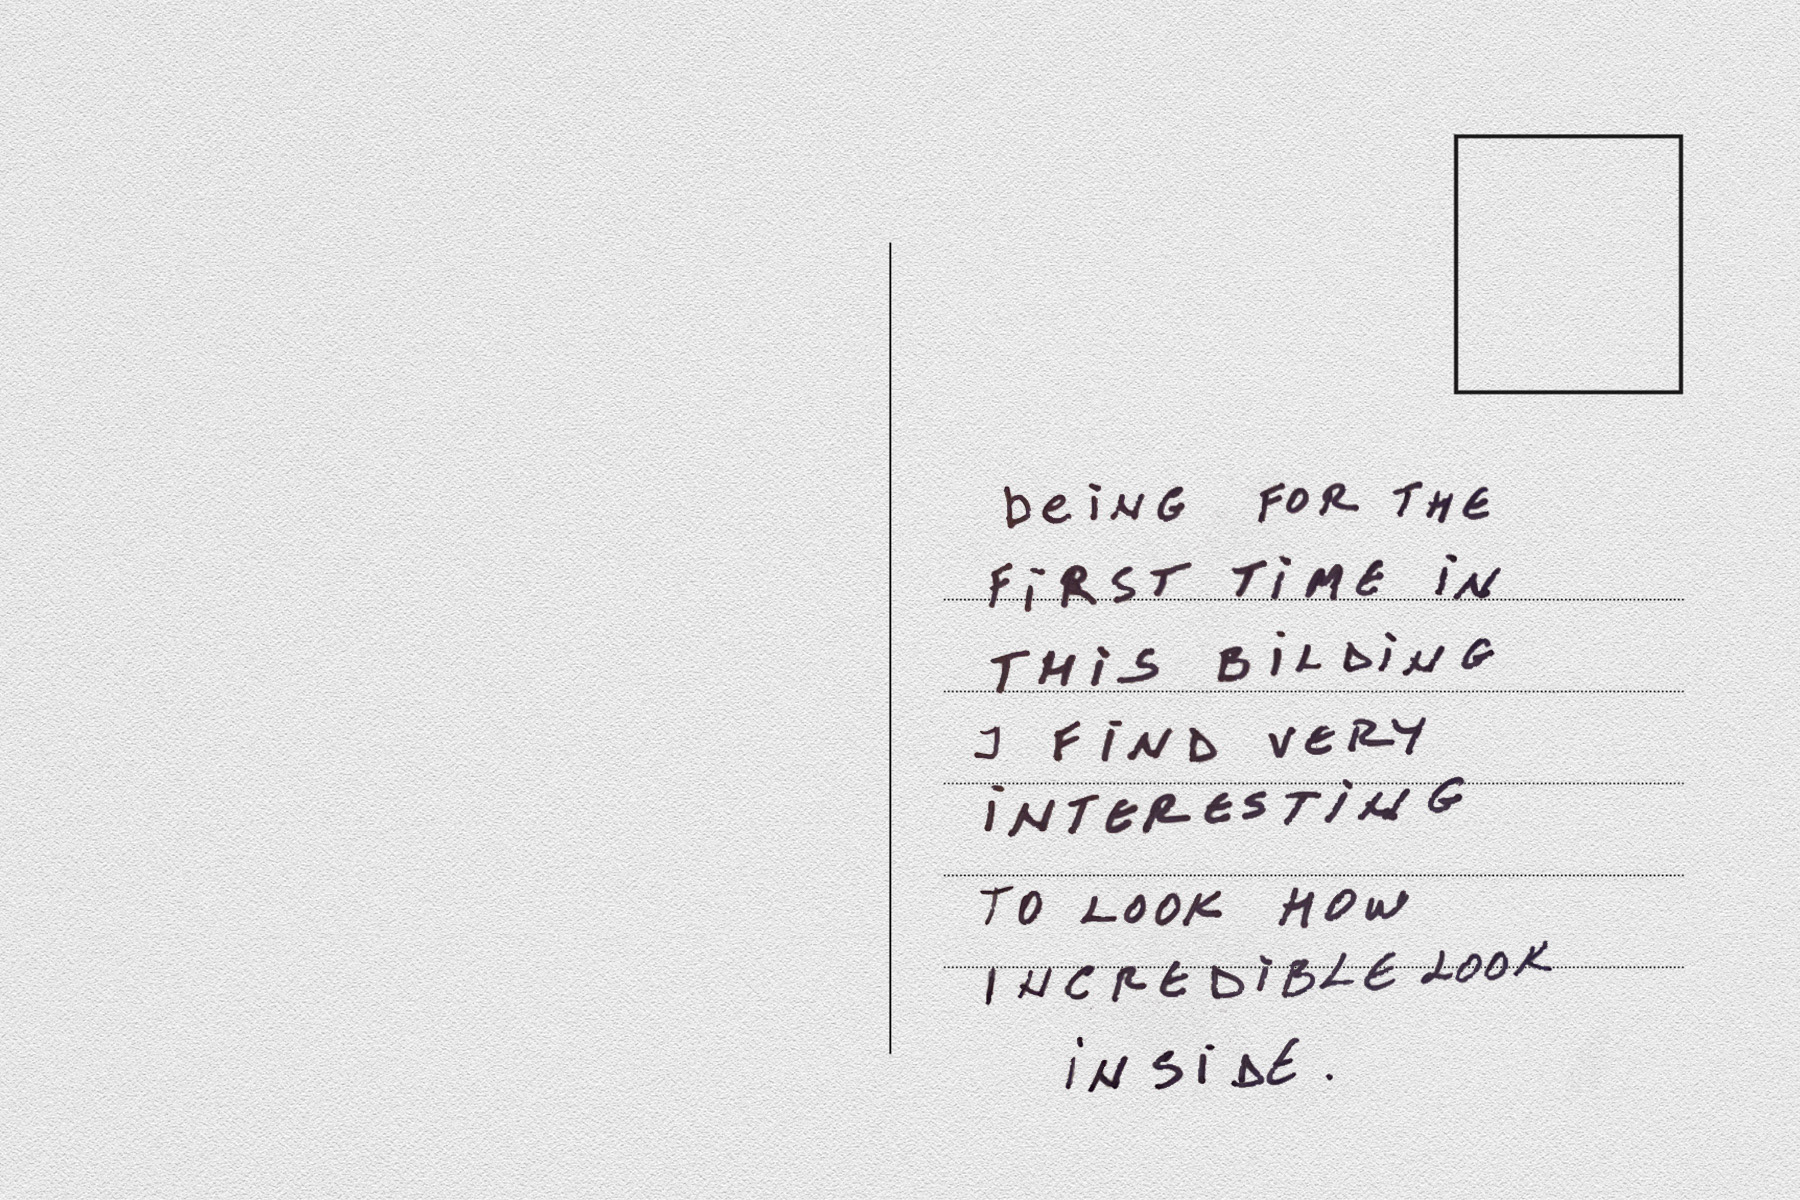 beiNG FOR THE
FiRST TiME iN
THiS BiLDiNG
I FiND VERY
iNTERESTiNG
TO LOOK HOW
INCREDiBLE LOOK
iNSiDE.